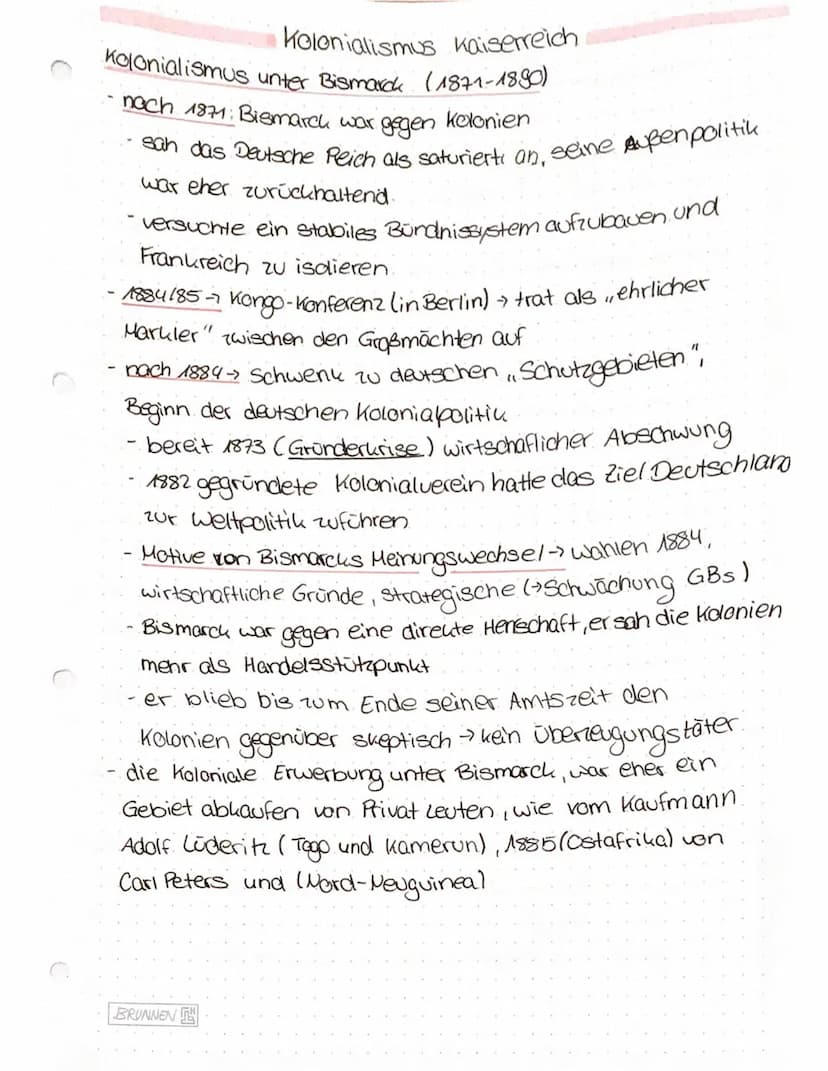 Kolonialismus Kaiserreich
Kolonialismus unter Bismarck (1871-1890)
- nach 1871: Bismarck war gegen Kolonien
- sah das Deutsche Reich als saturiert an, seine Außenpolitik
war eher zurückhaltend.
- versuchte ein stabiles Bündnissystem aufzubauen und
Frankreich zu isolieren
- 1884/85 → Kongo-Konferenz (in Berlin) → trat als „ehrlicher
Markler" zwischen den Großmächten auf
- nach 1884 → Schwenk zu deutschen „Schutzgebieten",
Beginn der deutschen Kolonialpolitik
- bereit 1873 (Gründerkrise) wirtschaflicher Abschwung
- 1882 gegründete Kolonialverein hatte das Ziel Deutschland
zur Weltpolitik zuführen
- Motive von Bismarcks Meinungswechsel → Wahlen 1884,
wirtschaftliche Gründe, strategische (→ Schwächung GBs)
- Bismarck war gegen eine direkte Herrschaft, er sah die Kolonien
mehr als Handelsstützpunkt
- er blieb bis zum Ende seiner Amtszeit den
Kolonien gegenüber skeptisch → kein Überzeugungstäter
- die Koloniale Erwerbung unter Bismarck, war eher ein
Gebiet abkaufen von Privat Leuten, wie vom Kaufmann
Adolf Lüderitz (Togo und Kamerun), 1885 (Ostafrika) von
Carl Peters und (Nord-Neuguinea)
BRUNNEN